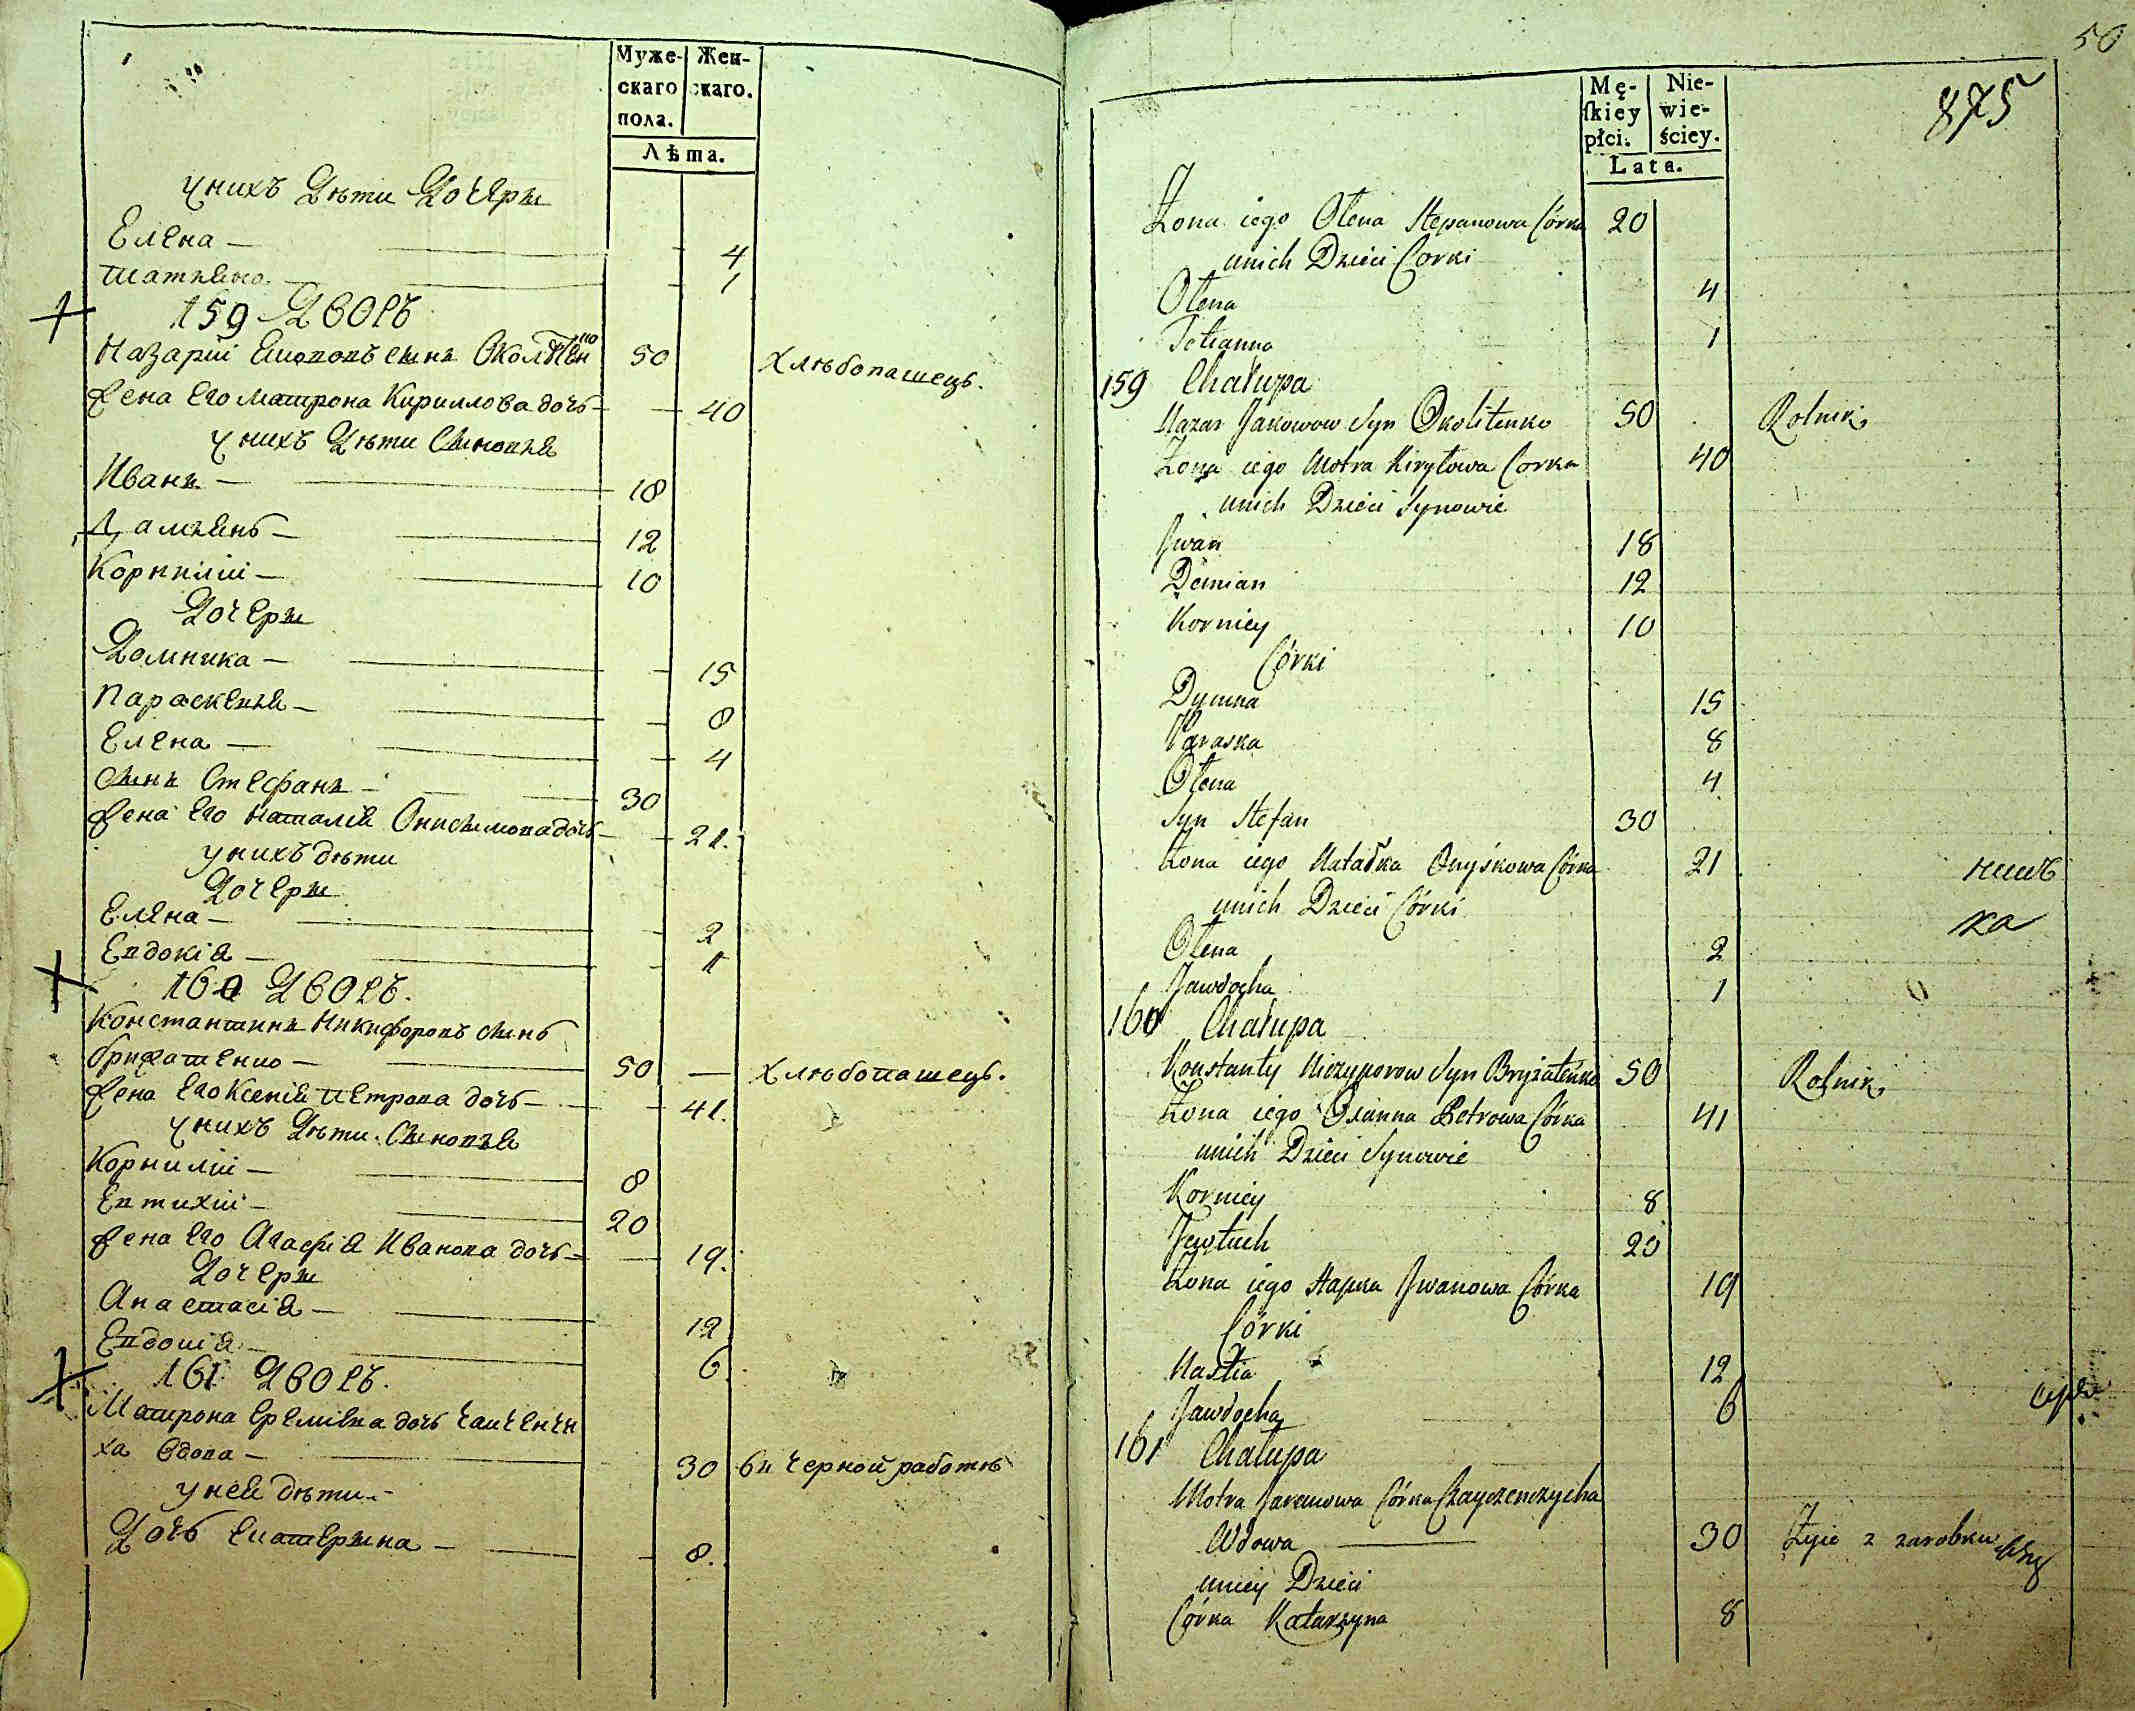 Муже-
скаго
пола.
Жен-
скаго.
Лѣта.
у нихъ Дѣти Дочеры
Елена — 4
Татіяна — 1
159 Дворъ
Назарій Якововъ сынъ Околѣтенко 50 хлѣбопашецъ.
Жена Его Матрона Кириллова дочь — 40
у нихъ Дѣти Сыновья
Иванъ — 18
Даміянъ — 12
Корнилій — 10
Дочеры
Домника — 15
Параскевія — 8
Елена — 4
Сынъ Стефанъ — 30
Жена Его Наталія Онисимова дочь — 21.
у нихъ дѣти
Дочеры
Елена — 2
Евдокія — 1
160 Дворъ.
Константинъ Никифоровъ сынъ
Брижатенко — 50 — хлѣбопашецъ.
Жена Его Ксенія Петрова дочь — 41.
у нихъ Дѣти Сыновья
Корнилій — 8
Евтихій — 20
Жена Его Агафія Иванова дочь — 19.
Дочеры
Анастасія — 12
Евдокія — 6
161 Дворъ.
Матрона Еремѣева дочь Чайченчи
ха Вдова — 30 въ черной работѣ
у ней дѣти
Дочь Екатерына — 8.
50
875
Mę-
skiey
płci.
Nie-
wie-
ściey.
Lata.
Żona iego Ołena Stepanowa Córka 20
u nich Dzieci Corki
Ołena 4
Tetianna 1
159 Chałupa
Nazar Jakowow Syn Okolitenko 50 Rolnik
Żona iego Motra Kiryłowa Corka 40
u nich Dzieci Synowie
Jwan 18
Demian 12
Korniey 10
Córki
Dymna 15
Paraska 8
Ołena 4
Syn Stefan 30
Żona iego Natałka Onyśkowa Córka 21
u nich Dzieci Córki
Ołena 2
Jawdocha 1
160 Chałupa
Konstanty Niczyporow Syn Bryżatenko 50 Rolnik
Żona iego Oxanna Petrowa Córka 41
u nich Dzieci Synowie
Korniey 8
Jewtuch 20
Żona iego Hapka Jwanowa Córka 19
Córki
Nastia 12
Jawdocha 6
161 Chałupa
Motra Jaremowa Córka Czayczenczycha
Wdowa 30 Żyie z zarobku
u niey Dzieci
Córka Katarzyna 8